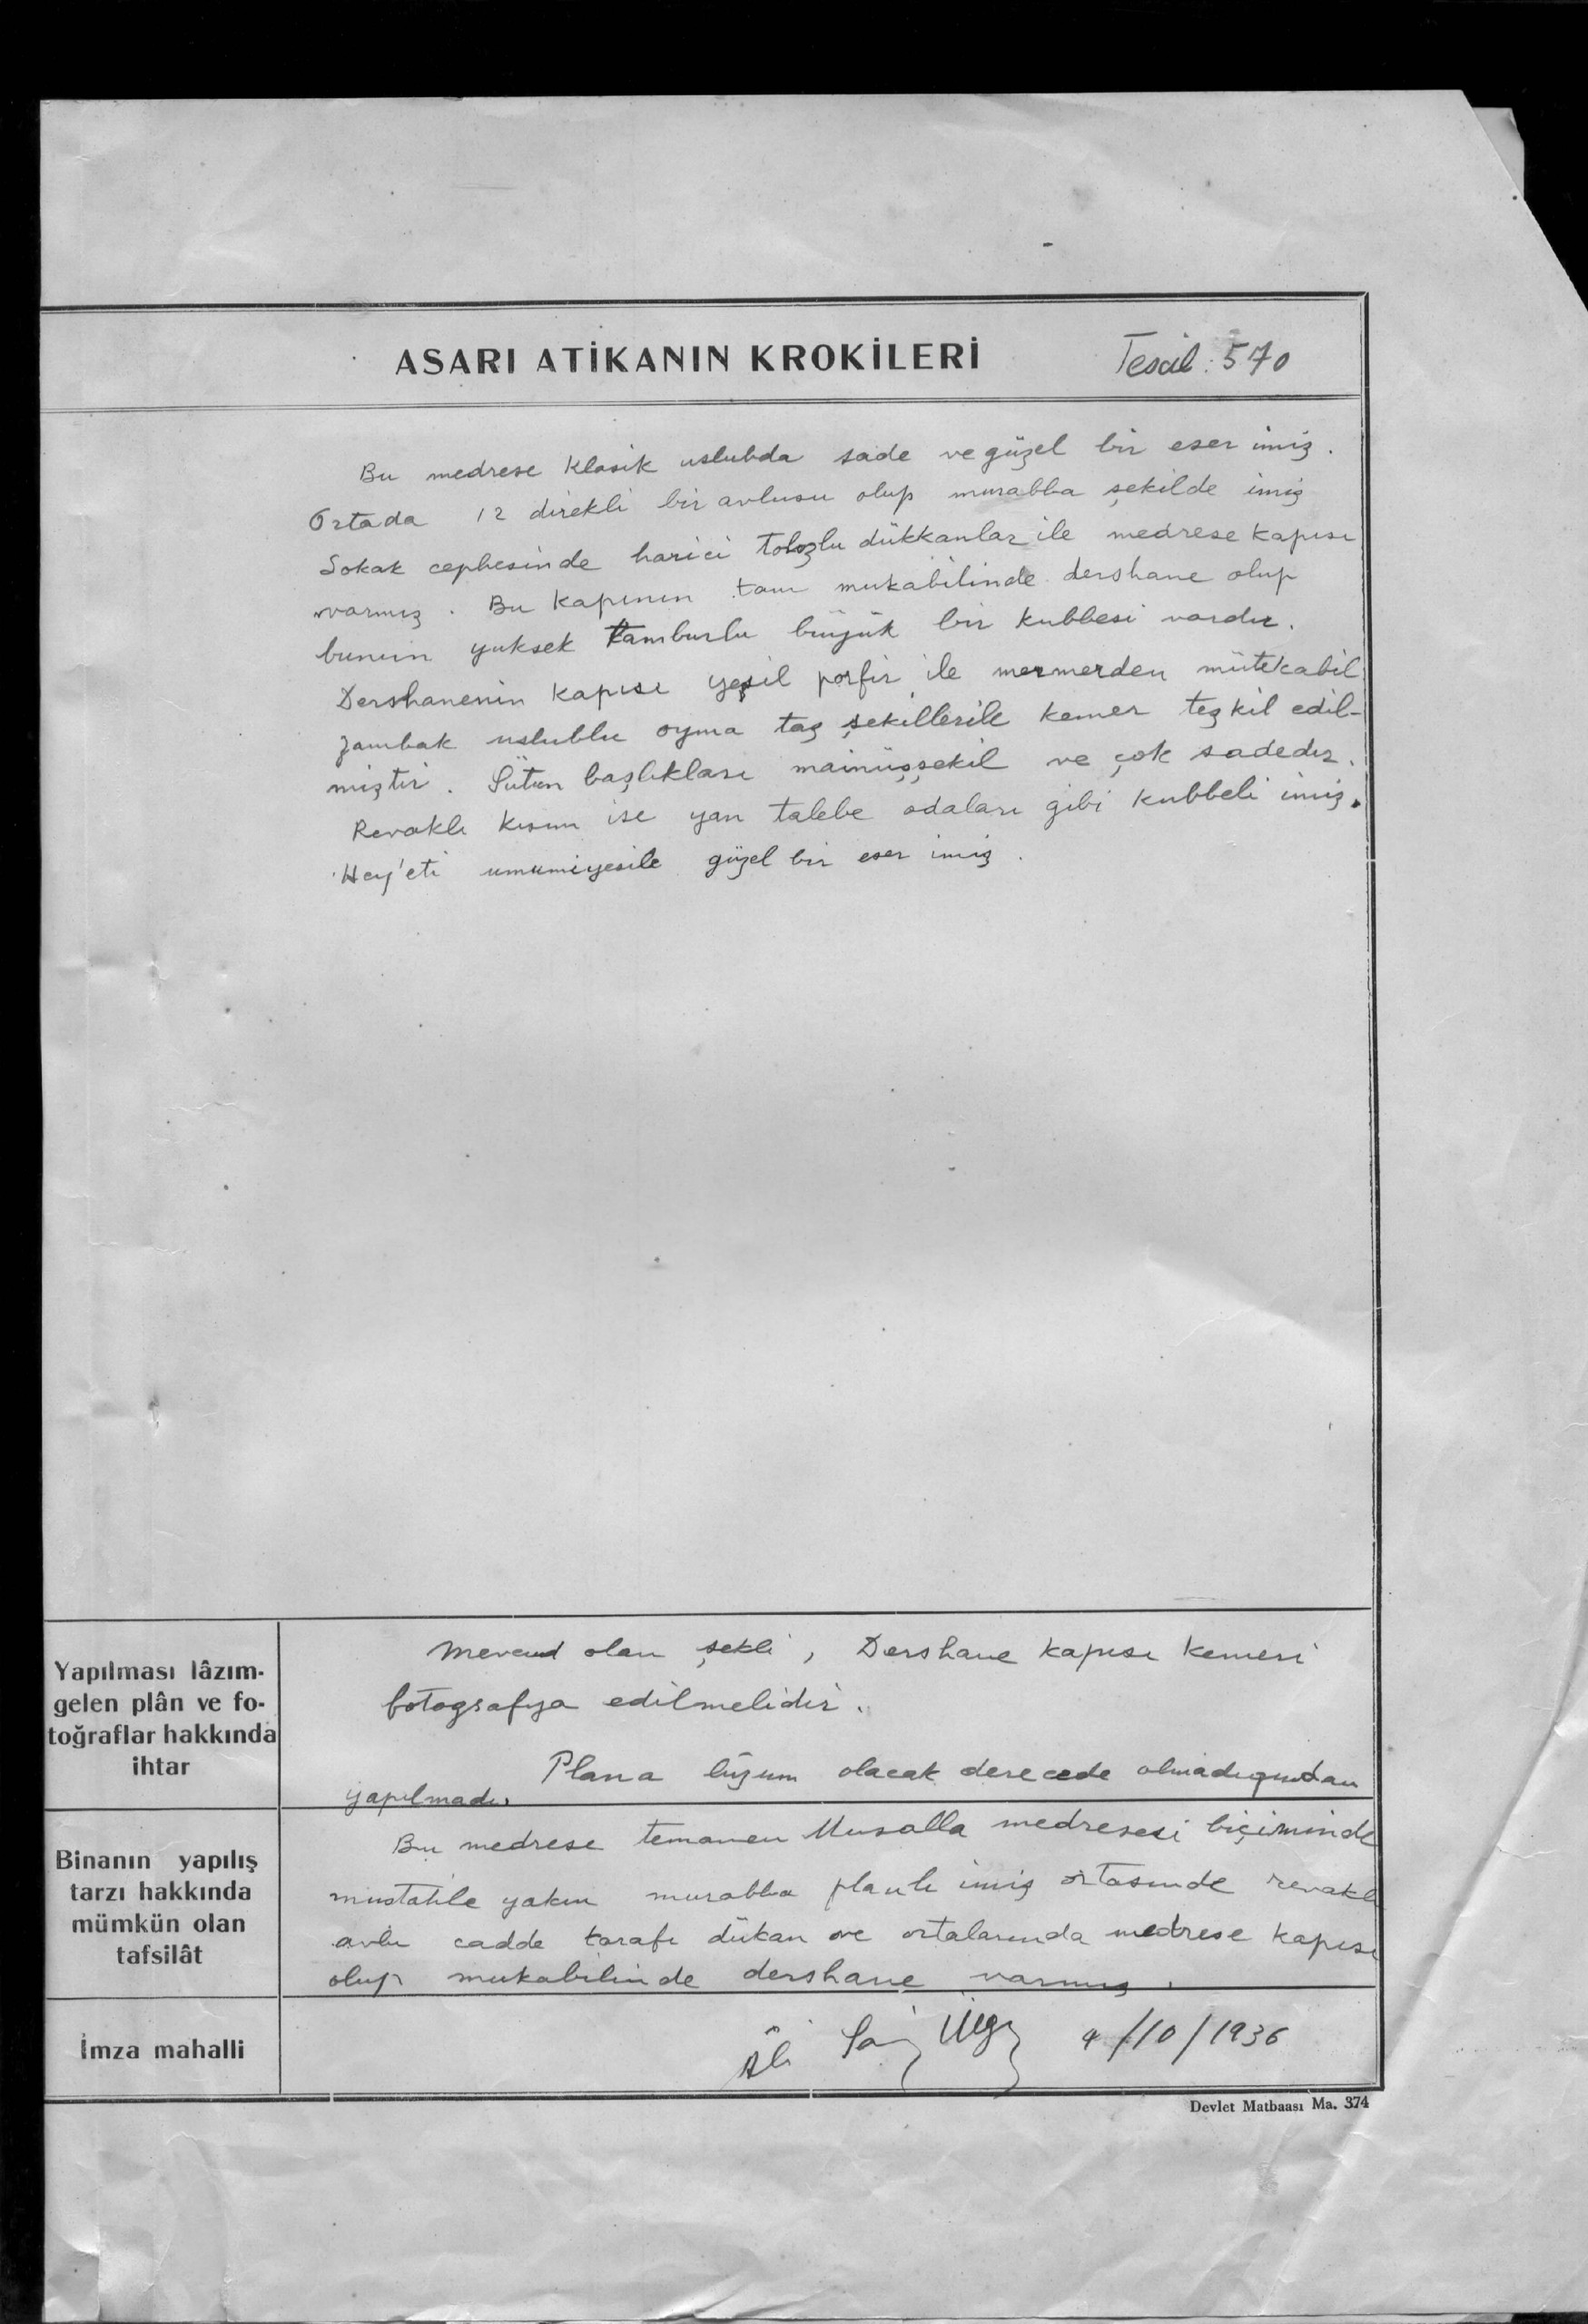 ASARI ATİKANIN KROKİLERİ
Tescil : 570
Bu medrese klasik uslubda sade ve güzel bir eser imiş.
Ortada 12 direkli bir avlusu olup murabba şekilde imiş
Sokak cephesinde harici tolozlu dükkanlar ile medrese kapısı
varmış. Bu kapının tam mukabilinde dershane olup
bunun yuksek tamburlu büyük bir kubbesi vardır.
Dershanenin kapısı yeşil porfir ile mermerden mütekabil
zambak uslublu oyma taş şekillerile kemer teşkil edil-
miştir. Sütun başlıkları mainüşşekil ve çok sadedir.
Revaklı kısım ise yan talebe odaları gibi kubbeli imiş.
Hey'eti umumiyesile güzel bir eser imiş.
Yapılması lâzım-
gelen plân ve fo-
toğraflar hakkında
ihtar
Mevcud olan şekli, Dershane kapısı kemeri
fotografya edilmelidir.
Plana lüzum olacak derecede olmadıgından
yapılmadı.
Binanın yapılış
tarzı hakkında
mümkün olan
tafsilât
Bu medrese temamen Musalla medresesi biçiminde
mustatile yakın murabba planlı imiş ortasında revaklı
avlu cadde tarafı dükan ve ortalarında medrese kapısı
olup mukabilinde dershane varmış.
İmza mahalli
Ali Saim Ülgen /10/1936
Devlet Matbaası Ma. 374